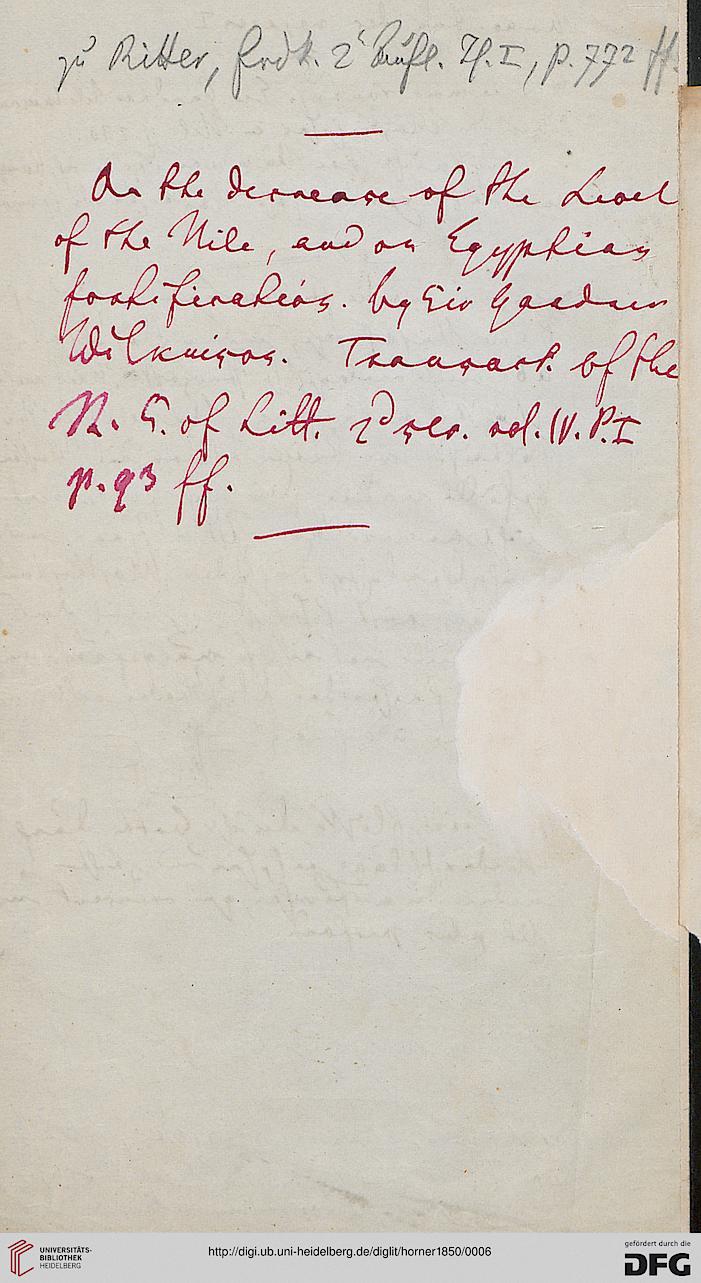 zu Ritter, Erdk. 2' Aufl. Th. I, p. 772 ff.
On the decrease of the Level
of the Nile, and on Egyptian
fortification. by Sir Gardner
Wilkinson. Transact. of the
R. S. of Litt. 2d ser. vol. IV. P. I
p. 93 ff.
UNIVERSITÄTS-
BIBLIOTHEK
HEIDELBERG
http://digi.ub.uni-heidelberg.de/diglit/horner1850/0006
gefördert durch die
DFG